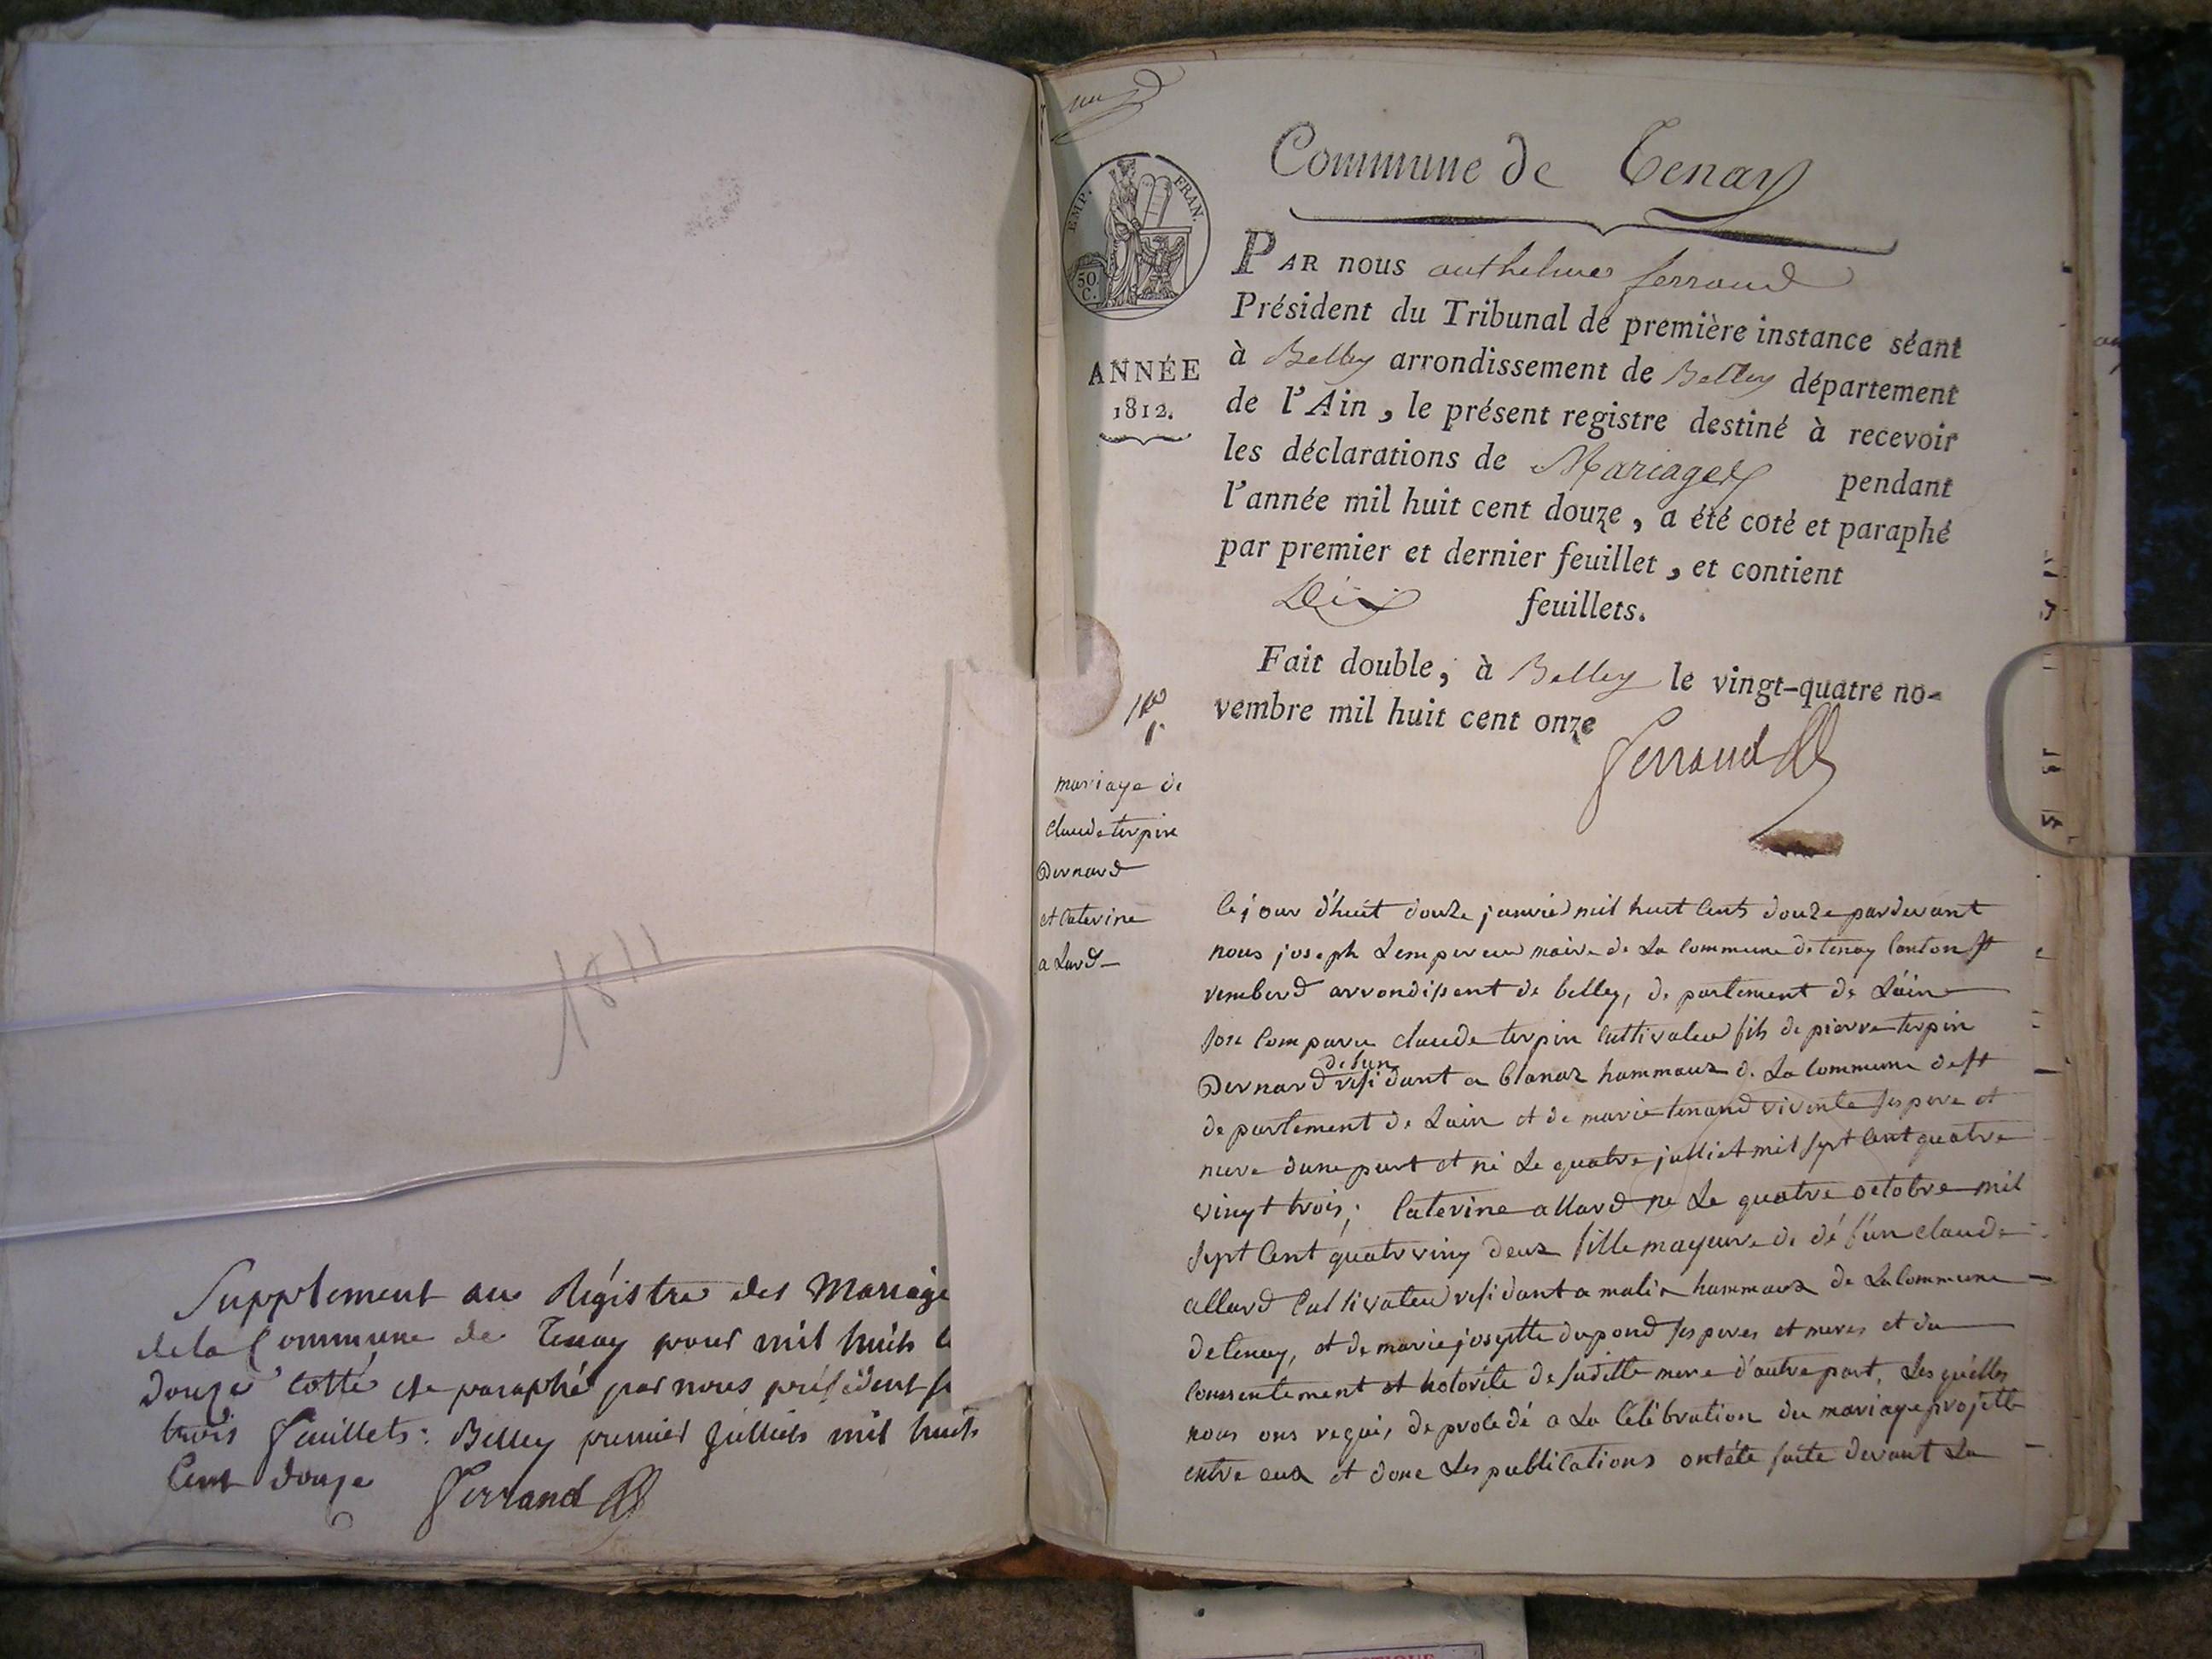 1811
Supplement au Régistre des Mariage
de la Commune de Tenay pour mil huit
douze cotté et paraphé par nous président
trois feuillets : Belley premier Juillet mil huit
Cent douze Ferrand
Commune de Tenay
EMP. FRAN.
50 C.
ANNÉE
1812.
PAR nous anthelme ferrand
Président du Tribunal de première instance séant
à Belley arrondissement de Belley département
de l'Ain, le présent registre destiné à recevoir
les déclarations de Mariages pendant
l'année mil huit cent douze, a été coté et paraphé
par premier et dernier feuillet, et contient
Dix feuillets.
Fait double, à Belley le vingt-quatre no-
vembre mil huit cent onze
Ferrand
mariage de
claude terpin
Bernard
et Caterine
a Lard
Ce jour d'huit douze janvier mil huit Cents douze pardevant
nous joseph Lempereur maire de La Commune de tenay Canton St
rembord arrondissent de belley, de partement de Láin
son Comparu claude terpin Cultivateur fils de pierre terpin
defun
Bernard resi dant a blanaz hammaux de La Commune de St
de partement de Lain et de marie tenand vivente ses pere et
mere dune part et né Le quatre julliet mil sept Cent quatre
vingt trois; Caterine allard ne Le quatre octobre mil
sept Cent quatrving deux fille mayeure de dé fun claude
allard Cultivateur resi dant a malix hammaux de La Commune
de tenay, et de marie josephte dupond ses peres et meres et du
Conssentement et notorite de saditte mere d'autre part, Les quélles
nous ons requis de procedé a La Célébration du mariage projetté
entre eux et donc Les publications ontété faite devant La